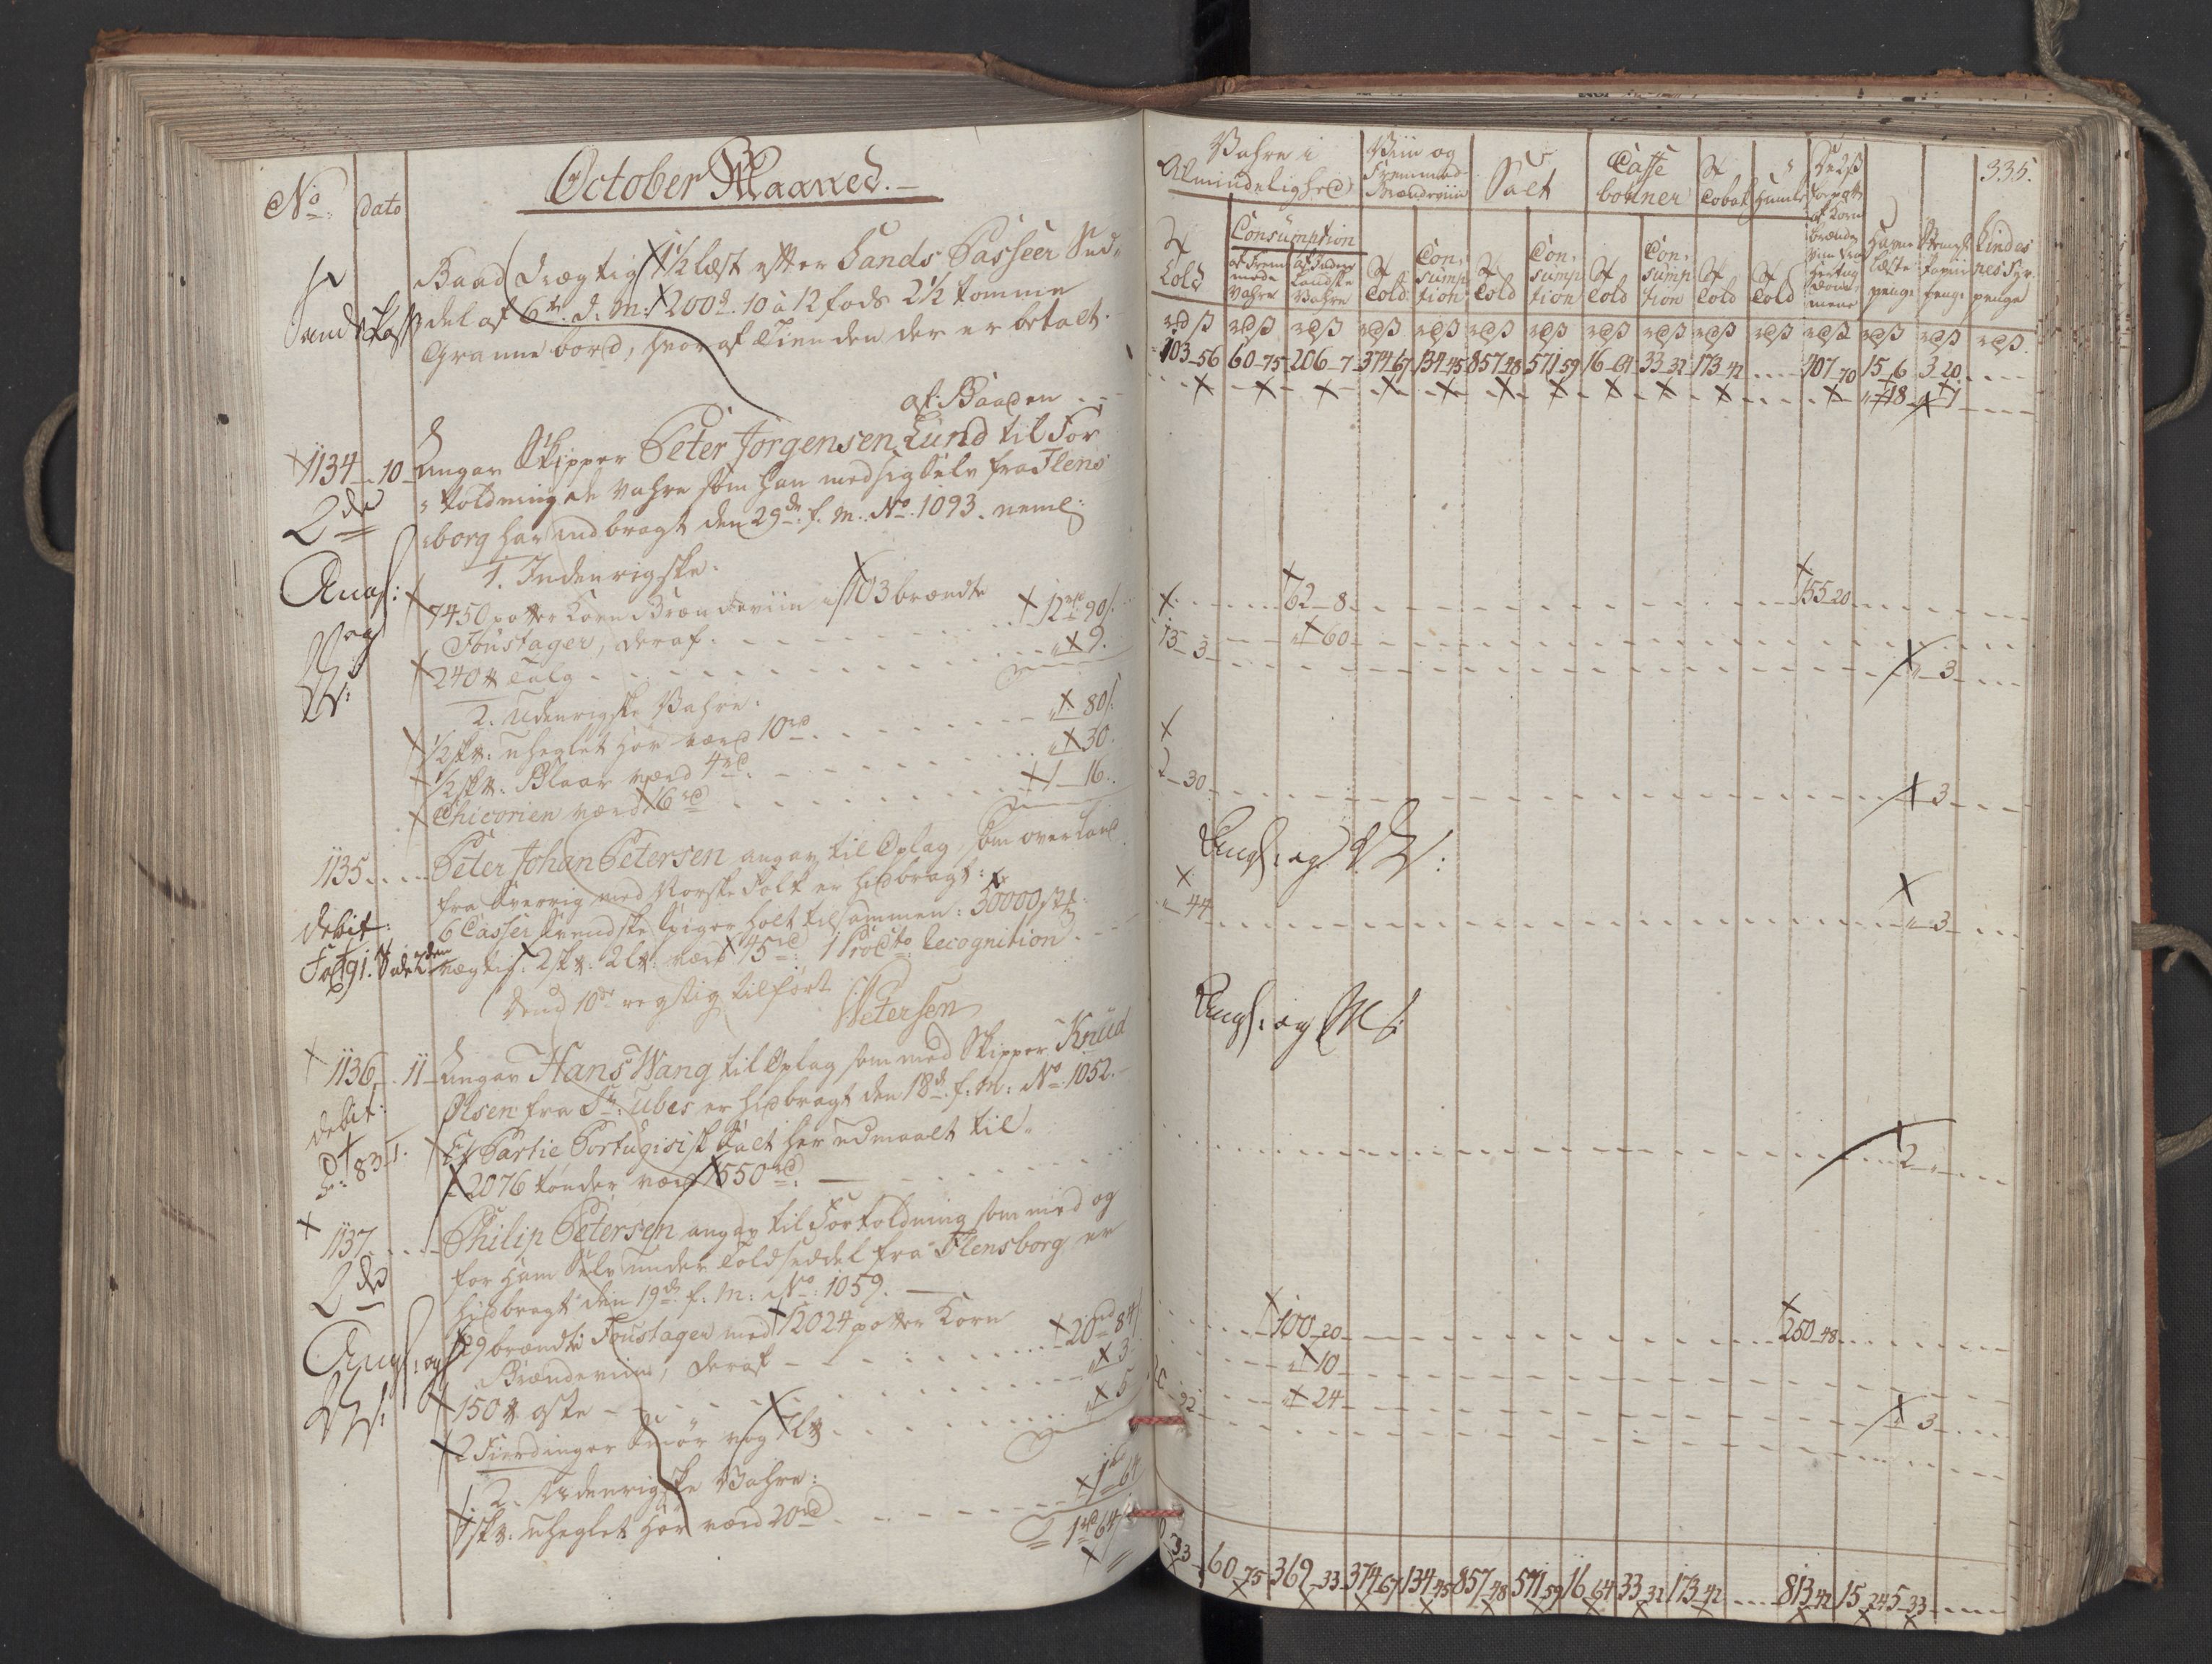 No. dato October Maaned.
Baad drægtig 1½ læst efter Sands Passeer Sed-
Sands Pass del af 6te d. M. 200d. 10 à 12 fods 2½ tomme
Granne bord, hvoraf Tienden der er betalt.
af Baaden
1134 10 Angav Skipper Peter Jørgensen Lund til For
2de toldning de Vahre som han med sig Selv fra Flens
borg har indbragt den 29de f. M. No. 1093. neml:
1. Indenrigske:
7450 potter Korn Brændeviin i 103 brændte
Foustager, deraf 12rd 90s.
240 lb Talg 9.
2. Udenrigske Vahre:
½ skp: uheglet Hør værd 10rd 80s.
½ skp. Blaar værd 4rd. 30.
Chicorien værd 16rd 1 16.
1135 Peter Johan Petersen angav til Oplag, som over Land
fra Sverrig med Norske Folk er hidbragt:
debit: 6 Casser Svendske Spiger holt tilsammen: 30000 st
vægtig: 2 skp: 2 lp: værd 45rd. 1 Procto Recognition
Dend 10de rigtig tilført
Petersen
1136 11 Angav Hans Wang til Oplag som med Skipper Knud
debit: Olsen fra St: Ubes er hidbragt den 18de f. M: No. 1052.
Et Partie Portugisisk Salt her udmaalt til
2076 tønder værd 1550rd.
1137 Philip Petersen angav til Fortoldning som med og
2de for ham Selv under Toldseddel fra Flensborg er
hidbragt den 19de f: M: No: 1059.
129 brændte Foustager med 12024 potter Korn
Brændeviin, deraf 20rd 84
150 lb oste 3.
2 Fierdinger Smør vog 7 lp 5
2. Udenrigske Vahre:
1 skp: uheglet Hør værd 20rd 1 64
1rd 64
Vahre i Almindelighed Viin og Fremmed Brændeviin Salt Caffe bønner Tobak Humle 335.
Told Consumption af Fremmede Vahre af Inden Landske Vahre Told Consumption Told Consumption Told Consumption Told Told
103-56 60-75 206-7 374-67 134-45 857-48 571-59 16-64 33-32 173-42 407-70 15-6 3-20
18 1
62-8 155-20
13-3 60
3
2-30 3
44 3
2
100-20 250-48
10
22 24 3
33 60-75 369-33 374-67 134-45 857-48 571-59 16-64 33-32 173-42 813-42 15-24 5-33